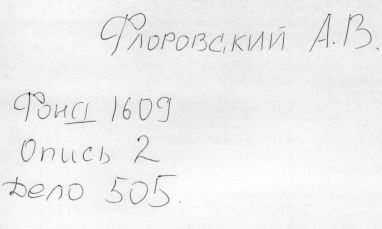 Флоровский А.В.
Фонд 1609
Опись 2
Дело 505.